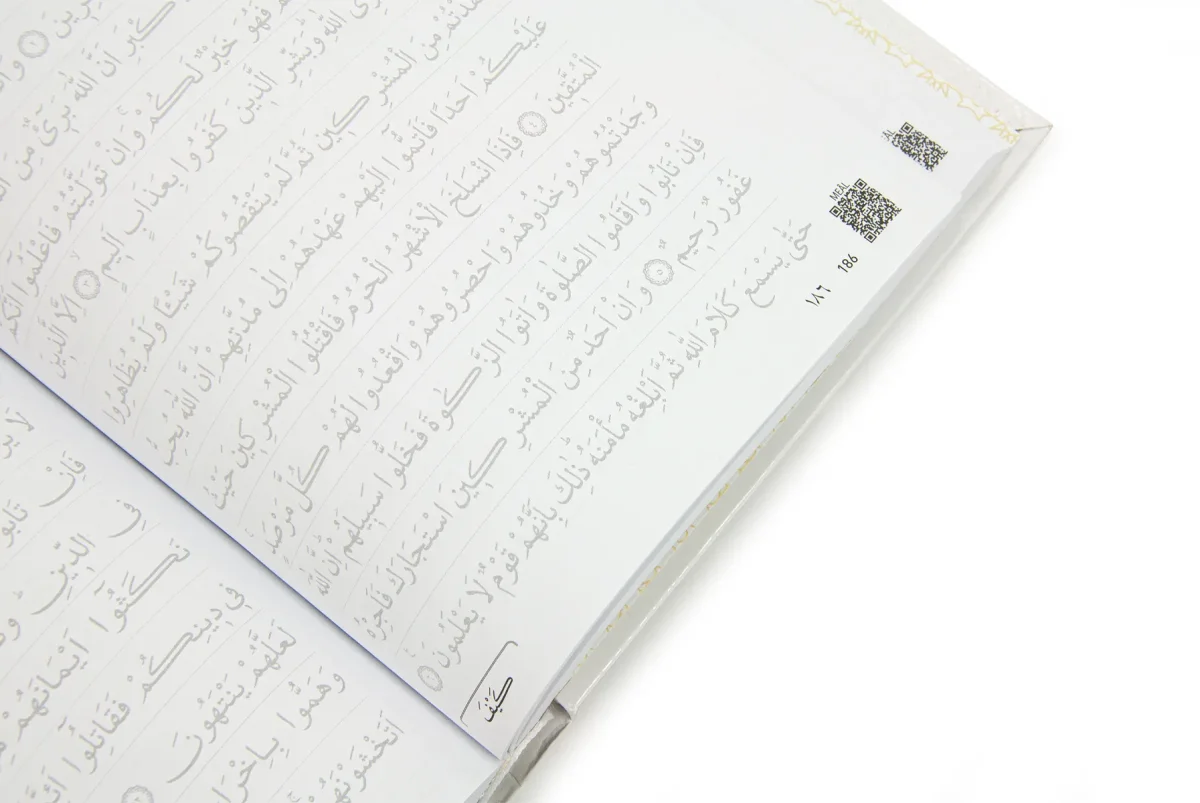 وَ
كْبَرِ اَنَّ اللّٰهَ بَرٖٓيءٌ مِنَ
فَهُوَ خَيْرٌ لَكُمْ وَاِنْ تَوَلَّيْتُمْ فَاعْلَمُٓوا اَنَّكُمْ
اللّٰهِ وَبَشِّرِ الَّذٖينَ كَفَرُوا بِعَذَابٍ اَلٖيمٍ ﴿٣﴾ اِلَّا الَّذٖينَ
مِنَ الْمُشْرِكٖينَ ثُمَّ لَمْ يَنْقُصُوكُمْ شَيْـًٔا وَلَمْ يُظَاهِرُوا
عَلَيْكُمْ اَحَدًا فَاَتِمُّٓوا اِلَيْهِمْ عَهْدَهُمْ اِلٰى مُدَّتِهِمْ اِنَّ اللّٰهَ يُحِبُّ
الْمُتَّقٖينَ ﴿٤﴾ فَاِذَا انْسَلَخَ الْاَشْهُرُ الْحُرُمُ فَاقْتُلُوا الْمُشْرِكٖينَ حَيْثُ
وَجَدْتُمُوهُمْ وَخُذُوهُمْ وَاحْصُرُوهُمْ وَاقْعُدُوا لَهُمْ كُلَّ مَرْصَدٍ
فَاِنْ تَابُوا وَاَقَامُوا الصَّلٰوةَ وَاٰتَوُا الزَّكٰوةَ فَخَلُّوا سَبٖيلَهُمْ اِنَّ اللّٰهَ
غَفُورٌ رَحٖيمٌ ﴿٥﴾ وَاِنْ اَحَدٌ مِنَ الْمُشْرِكٖينَ اسْتَجَارَكَ فَاَجِرْهُ
حَتّٰى يَسْمَعَ كَلَامَ اللّٰهِ ثُمَّ اَبْلِغْهُ مَأْمَنَهُ ذٰلِكَ بِاَنَّهُمْ قَوْمٌ لَا يَعْلَمُونَ ﴿٦﴾
كَيْفَ
MEAL
١٨٦ 186
لَا
فَاِنْ تَابُوا
فِي الدّٖينِ
نَكَثُٓوا اَيْمَانَهُمْ
فٖي دٖينِكُمْ فَقَاتِلُٓوا
لَعَلَّهُمْ يَنْتَهُونَ
وَهَمُّوا
اَتَخْشَوْنَهُمْ